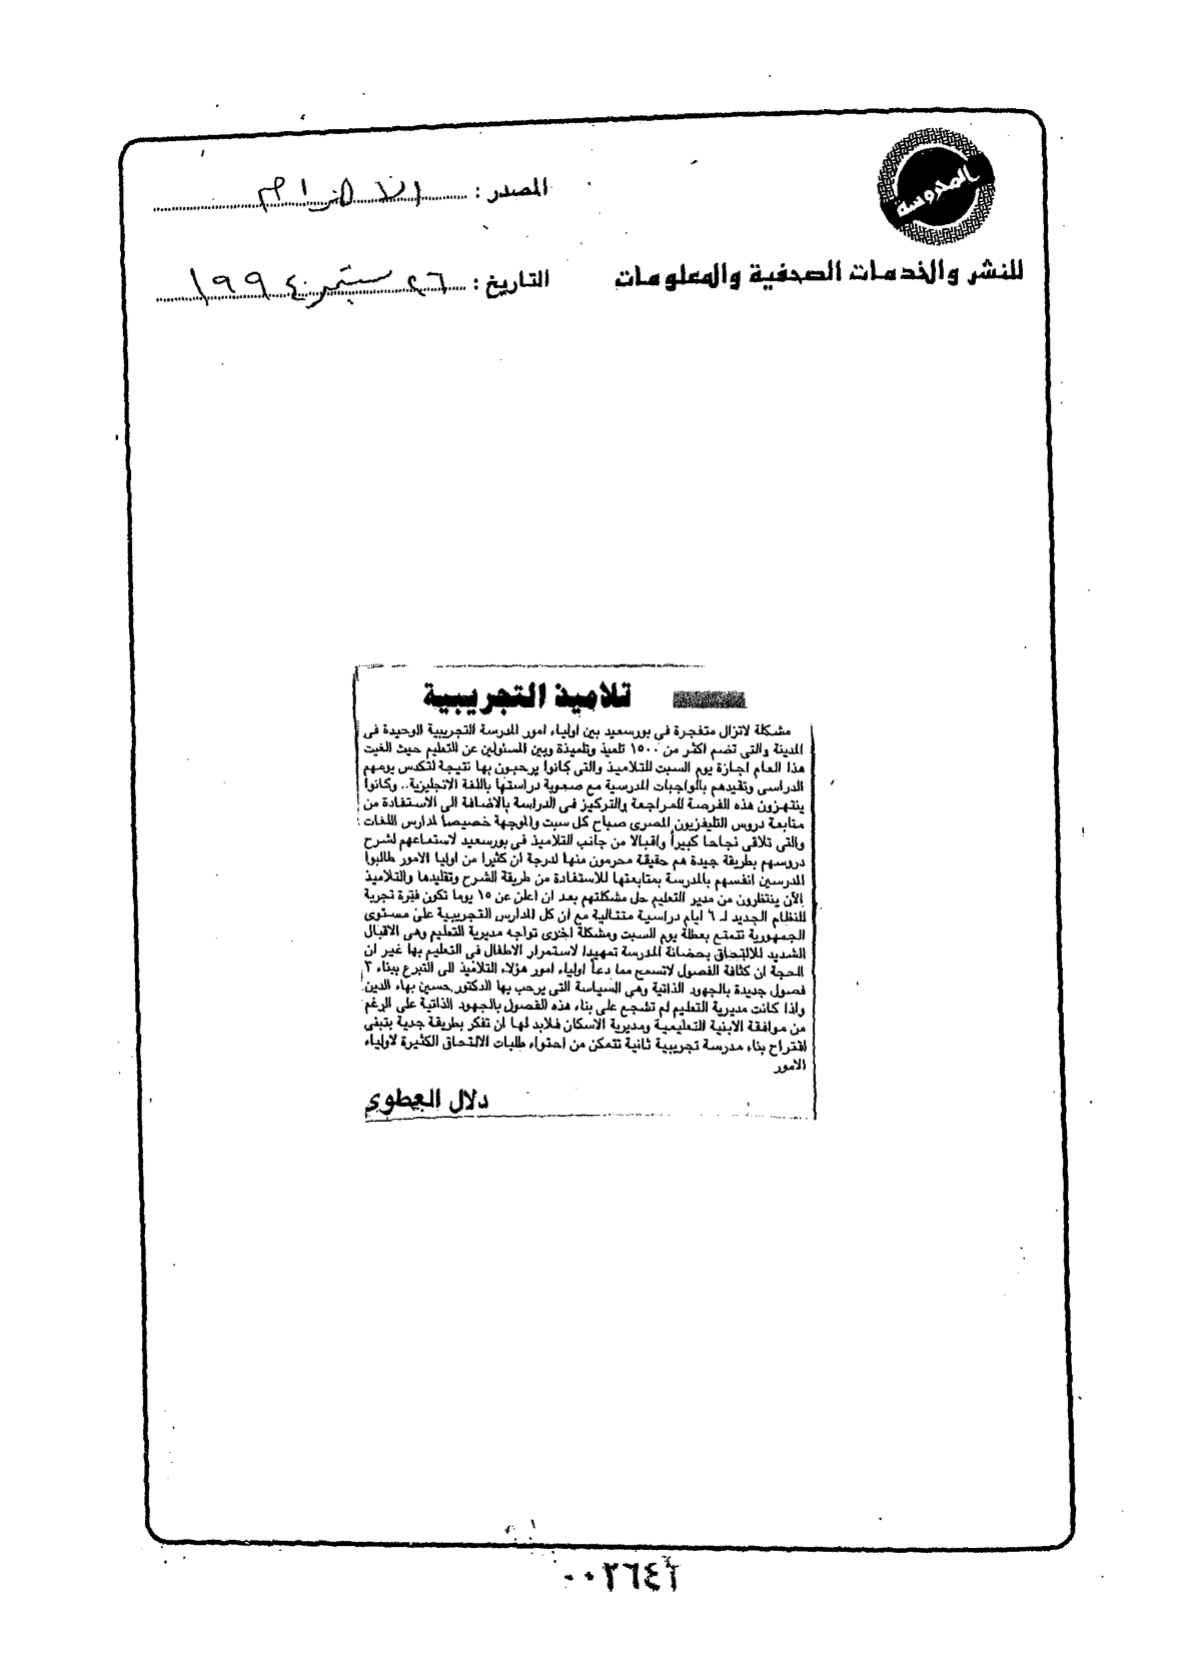 المحروسة
المصدر : الاهرام
للنشر والخدمات الصحفية والمعلومات
التاريخ : ٢٦ سبتمبر ١٩٩٤
تلاميذ التجريبية
مشكلة لاتزال متفجرة في بورسعيد بين اولياء امور المدرسة التجريبية الوحيدة فى
المدينة والتى تضم اكثر من ١٥٠٠ تلميذ وتلميذة وبين المسئولين عن التعليم حيث الغيت
هذا العام اجازة يوم السبت للتلاميذ والتى كانوا يرحبون بها نتيجة لتكدس يومهم
الدراسى وتقيدهم بالواجبات المدرسية مع صعوبة دراستها باللغة الانجليزية.. وكانوا
ينتهزون هذه الفرصة للمراجعة والتركيز فى الدراسة بالاضافة الى الاستفادة من
متابعة دروس التليفزيون المصرى صباح كل سبت والموجهة خصيصا لمدارس اللغات
والتى تلاقى نجاحا كبيرا واقبالا من جانب التلاميذ فى بورسعيد لاستماعهم لشرح
دروسهم بطريقة جيدة هم حقيقة محرمون منها لدرجة ان كثيرا من اوليا الامور طالبوا
المدرسين انفسهم بالمدرسة بمتابعتها للاستفادة من طريقة الشرح وتقليدها والتلاميذ
الآن ينتظرون من مدير التعليم حل مشكلتهم بعد ان اعلن عن ١٥ يوما تكون فترة تجربة
للنظام الجديد لـ ٦ ايام دراسية متتالية مع ان كل المدارس التجريبية على مستوى
الجمهورية تتمتع بعطلة يوم السبت ومشكلة اخرى تواجه مديرية التعليم وهى الاقبال
الشديد للالتحاق بحضانة المدرسة تمهيدا لاستمرار الاطفال فى التعليم بها غير ان
الحجة ان كثافة الفصول لاتسمح مما دعا اولياء امور هؤلاء التلاميذ الى التبرع ببناء ٣
فصول جديدة بالجهود الذاتية وهى السياسة التى يرحب بها الدكتور حسين بهاء الدين
واذا كانت مديرية التعليم لم تشجع على بناء هذه الفصول بالجهود الذاتية على الرغم
من موافقة الابنية التعليمية ومديرية الاسكان فلابد لها ان تفكر بطريقة جدية بتبنى
اقتراح بناء مدرسة تجريبية ثانية تتمكن من احتواء طلبات الالتحاق الكثيرة لاولياء
الامور
دلال العطوى